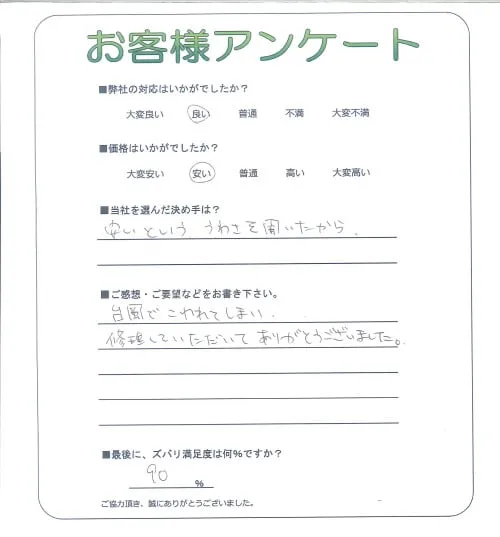 お客様アンケート
■弊社の対応はいかがでしたか？
大変良い 良い 普通 不満 大変不満
■価格はいかがでしたか？
大変安い 安い 普通 高い 大変高い
■当社を選んだ決め手は？
安いという、うわさを聞いたから、
■ご感想・ご要望などをお書き下さい。
台風でこわれてしまい、
修理していただいてありがとうございました。
■最後に、ズバリ満足度は何%ですか？
90 %
ご協力頂き、誠にありがとうございました。